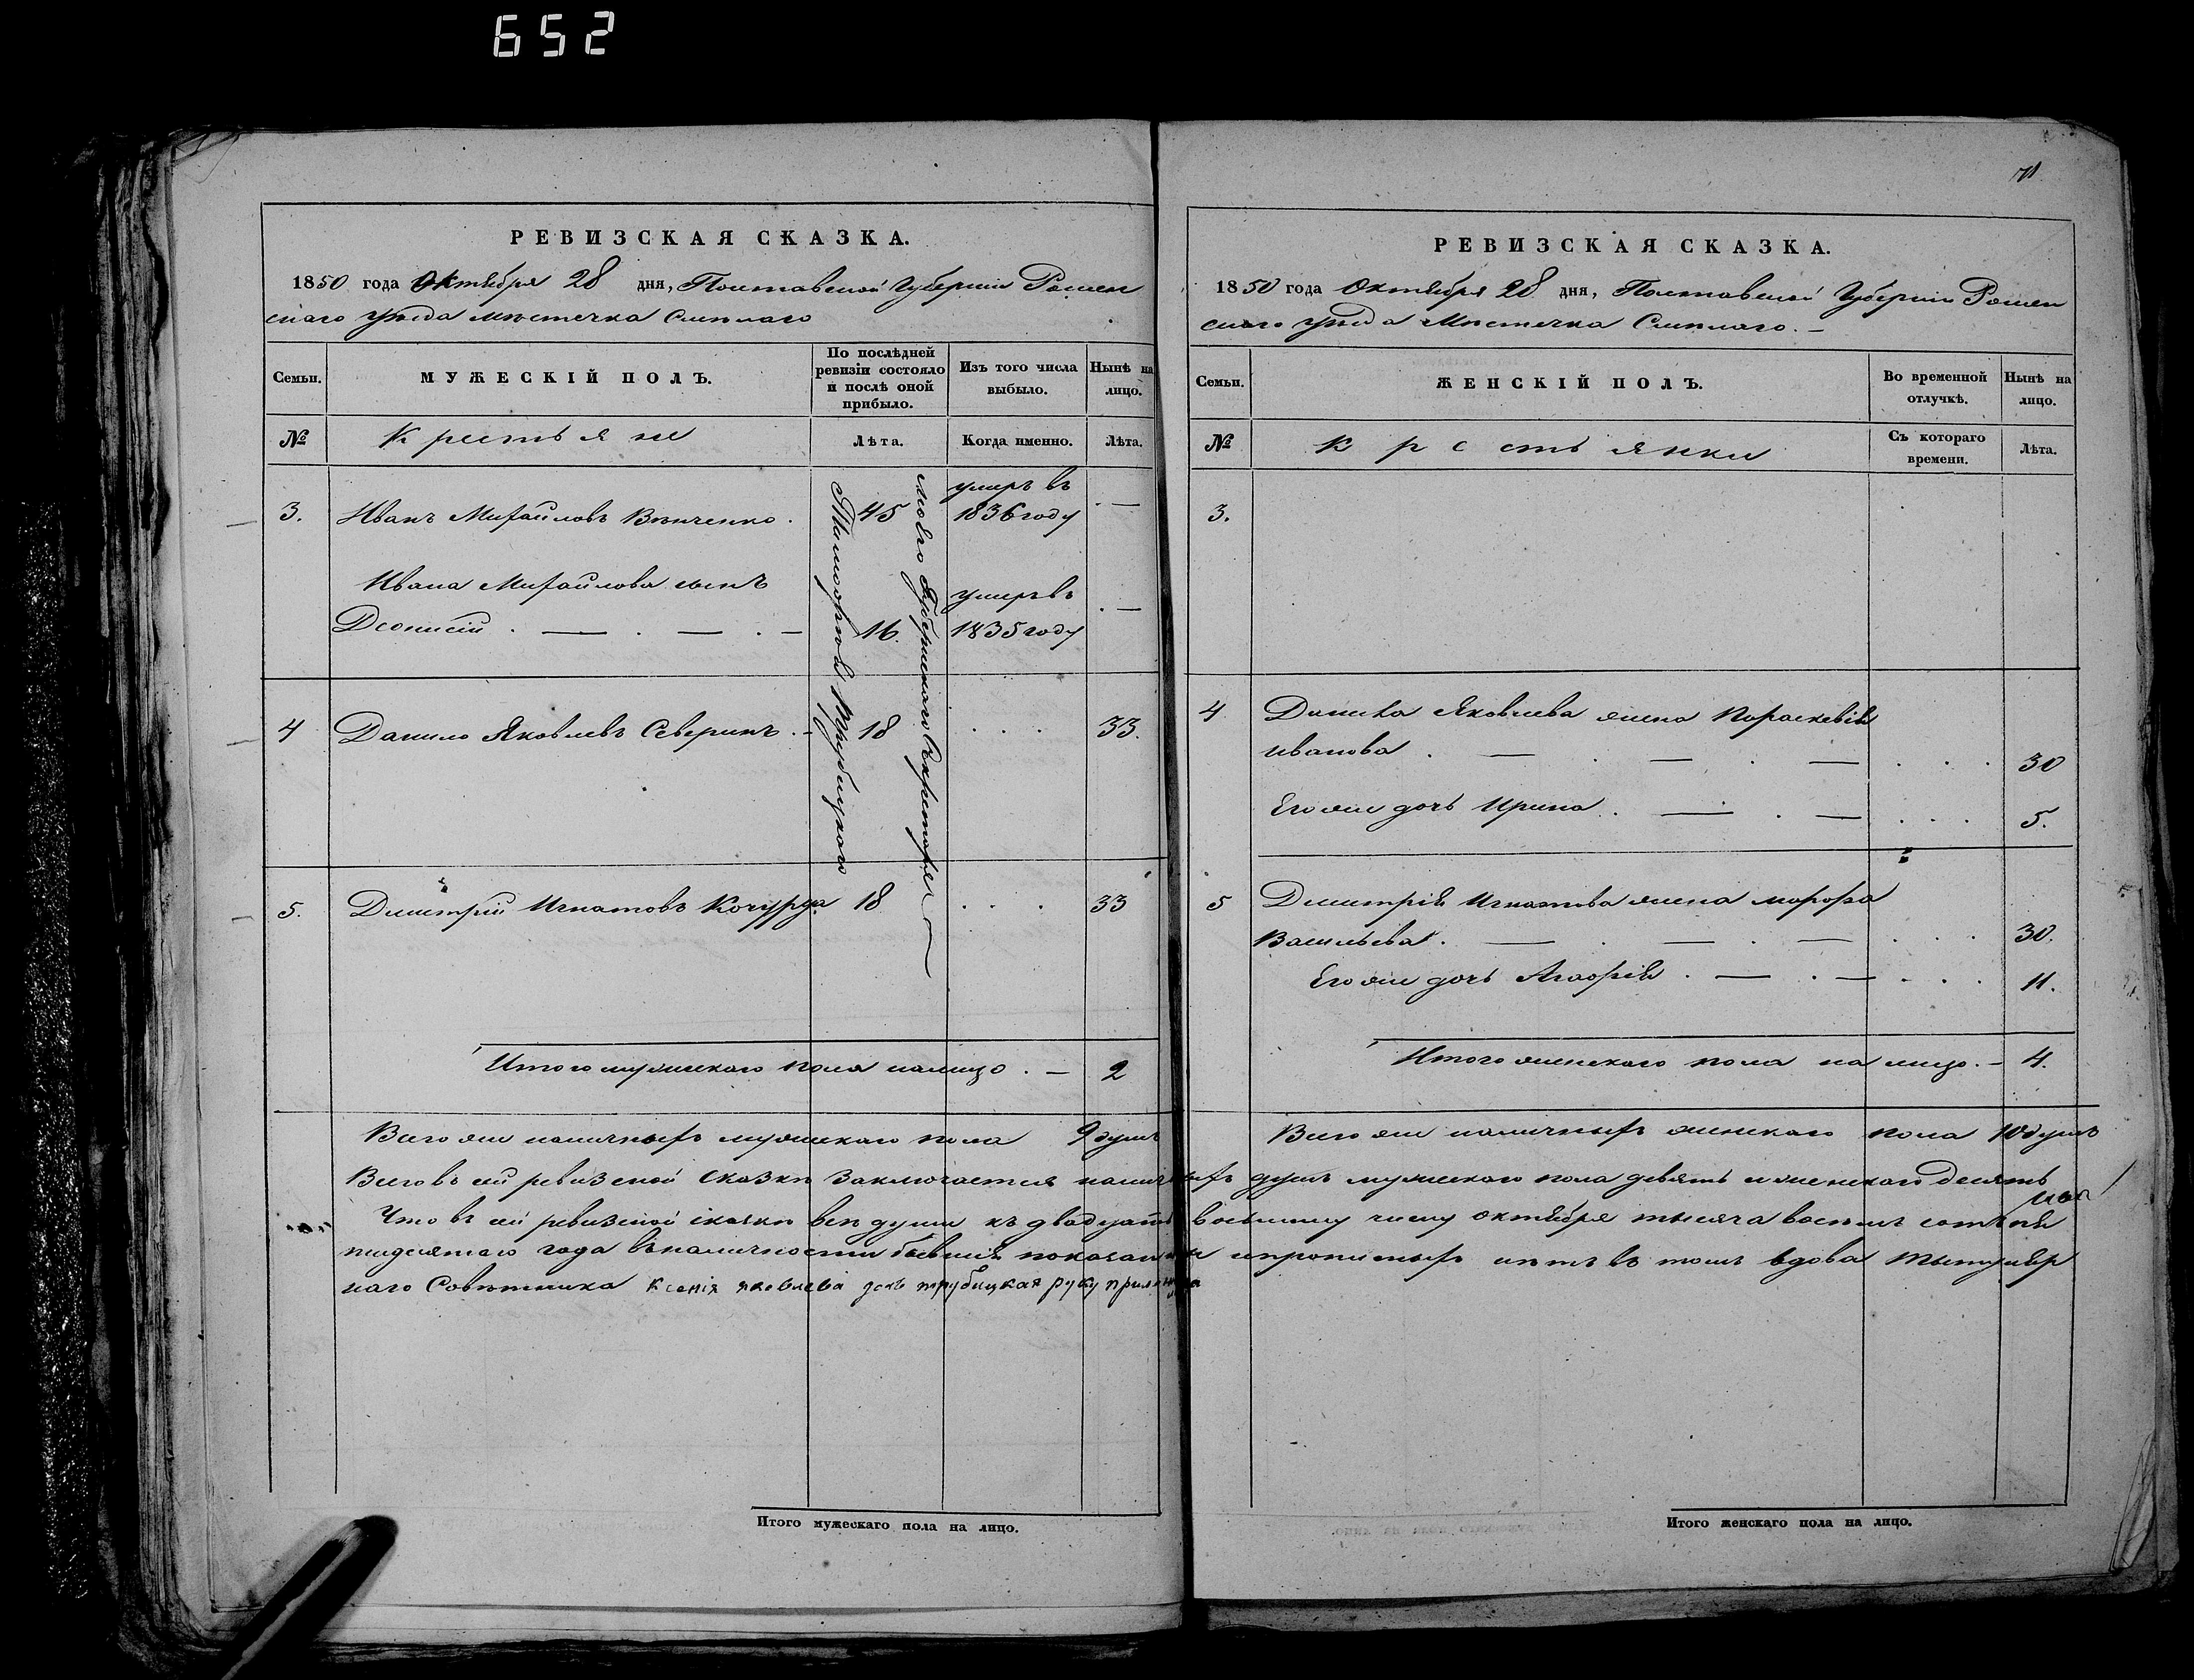 652
РЕВИЗСКАЯ СКАЗКА.
1850 года Октября 28 дня, Полтавской Губернии Ромен
скаго уѣзда мѣстечка Смѣлаго
Семьи.
МУЖЕСКІЙ ПОЛЪ.
По послѣдней ревизіи состояло и послѣ оной прибыло.
Изъ того числа выбыло.
Нынѣ на лицо.
№
Крестьяне
Лѣта.
Когда именно.
Лѣта.
3. Иванъ Михайловъ Вѣнченко. 45 умеръ въ 1836 году —
Ивана Михайлова сынъ
Деонисій . — . — . — 16. умеръ въ 1835 году . —
4 Данило Яковлевъ Северинъ . - 18 . . . 33.
5. Димитрій Игнатовъ Кочурда 18 . . . 33
Итого мужескаго пола налицо . — 2
Всего же наличныхъ мужескаго пола 9 душъ
РЕВИЗСКАЯ СКАЗКА.
1850 года Октября 28 дня, Полтавской Губерніи Ромен
скаго уѣзда Мѣстечка Смѣлаго. —
Семьи.
ЖЕНСКІЙ ПОЛЪ.
Во временной отлучкѣ.
Нынѣ на лицо.
№
Крестьянки
Съ котораго времени.
Лѣта.
3.
4 Данила Яковлева жена Параскевія
Иванова . — . — . — . . . 30
Его же дочь Ирина . — . — . . . 5.
5 Димитрія Игнатова жена Марфа
Васильева . — . — . — . . . 30.
Его же дочь Агафія . — . — . . . 11.
Итого женскаго пола на лицо. - 4.
Всего же наличныхъ женскаго пола 10 душъ
Всего въ сей ревизской сказки заключается наличныхъ душъ мужескаго пола девять и женскаго десять
Что въ сей ревизской сказки всѣ души къ двадцать восьмому числу октября тысяча восемь сотъ пя
тидесятаго года въ наличности бывшія показаны и прописныхъ нѣтъ въ томъ вдова титуляр
наго Совѣтника Ксенія Яковлева дочь Трубицкая руку приложила
Титулярнаго Трубицкаго
Губернскаго Секретаря
Итого мужескаго пола на лицо.
Итого женскаго пола на лицо.